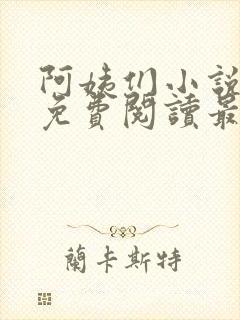 阿姨们小說
免費閱讀最
蘭卡斯特